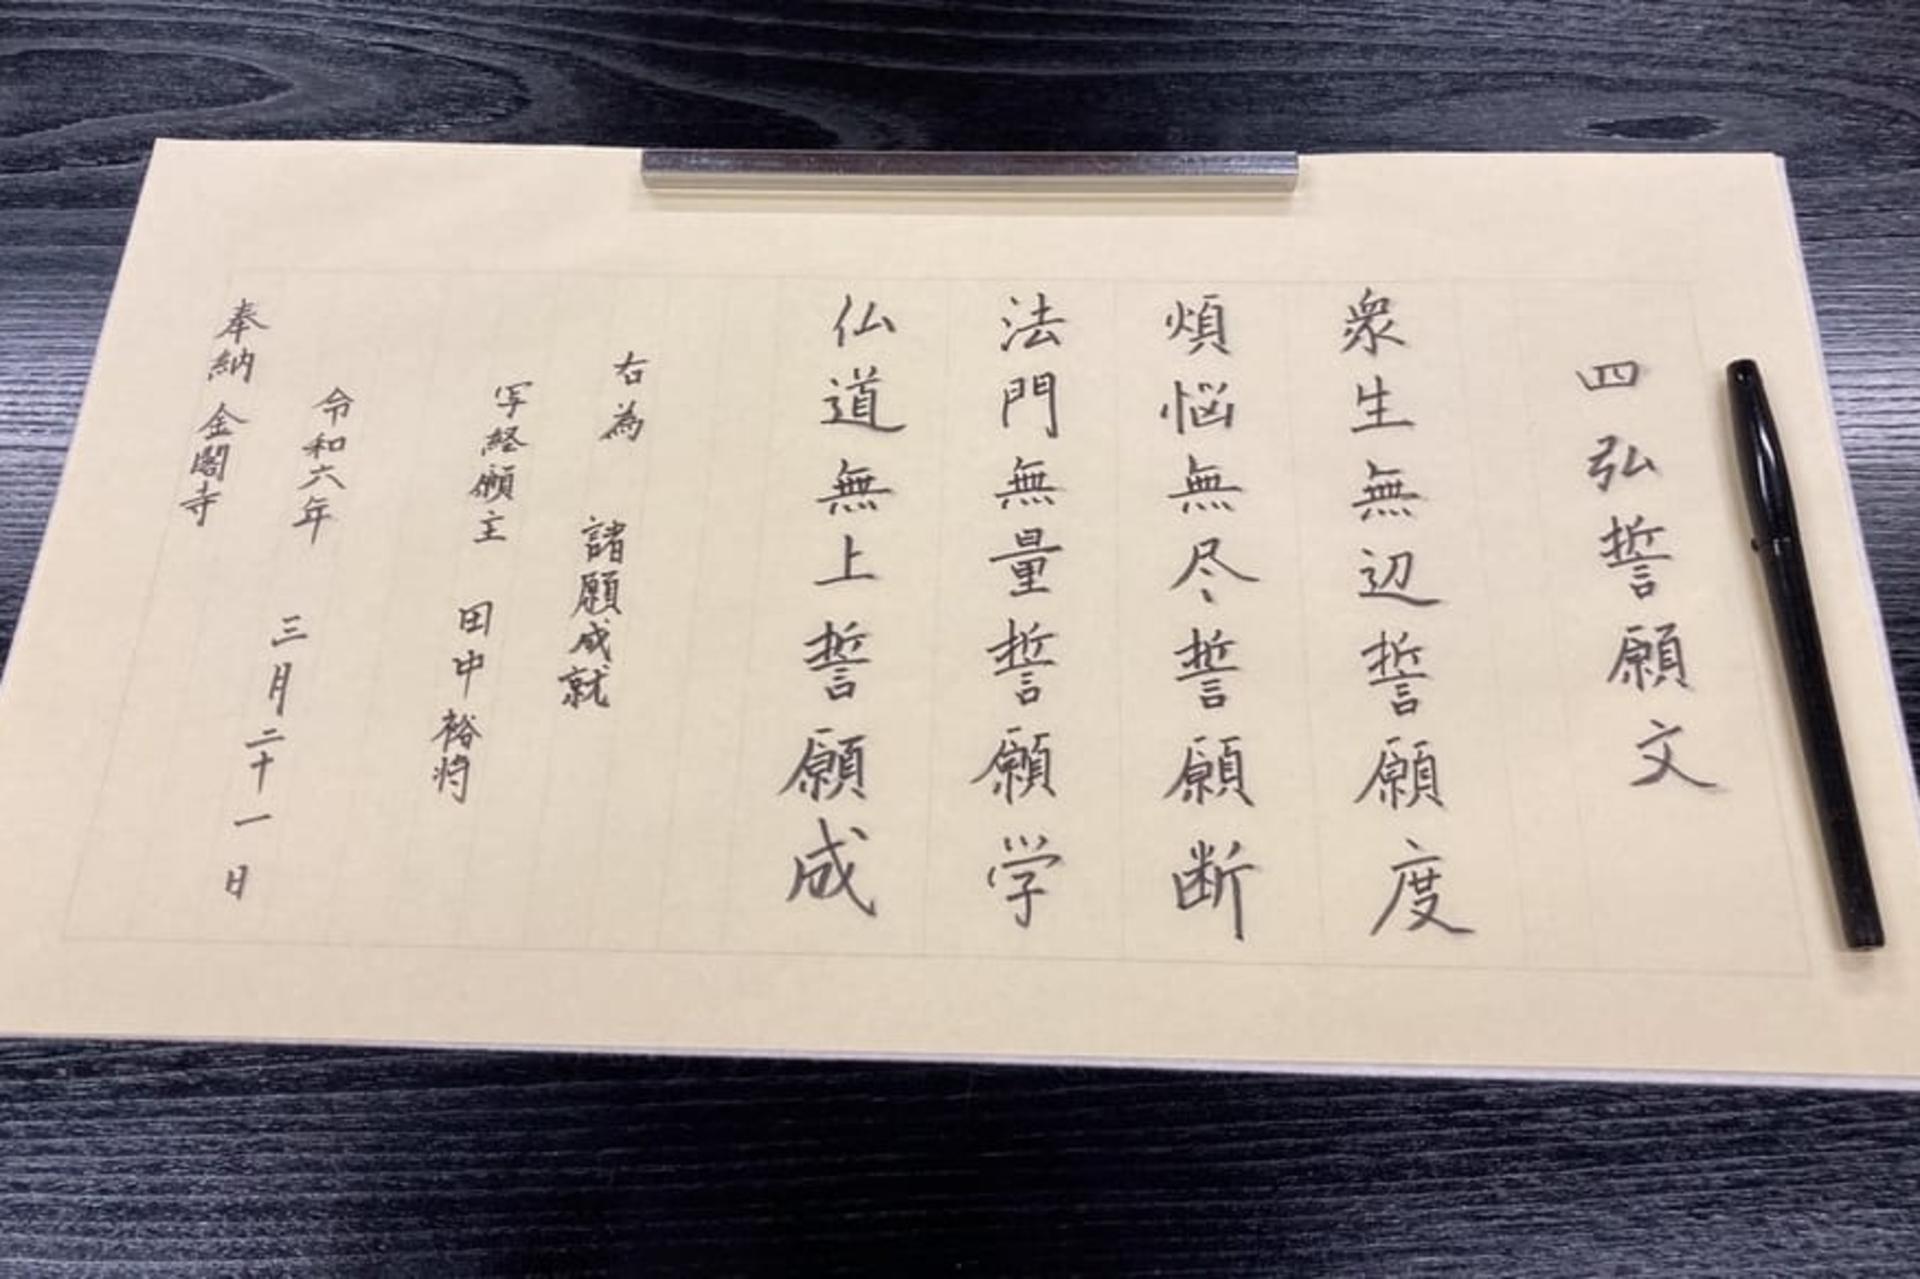 四弘誓願文
衆生無辺誓願度
煩悩無尽誓願断
法門無量誓願学
仏道無上誓願成
右為 諸願成就
写経願主 田中裕将
令和六年 三月二十一日
奉納 金閣寺